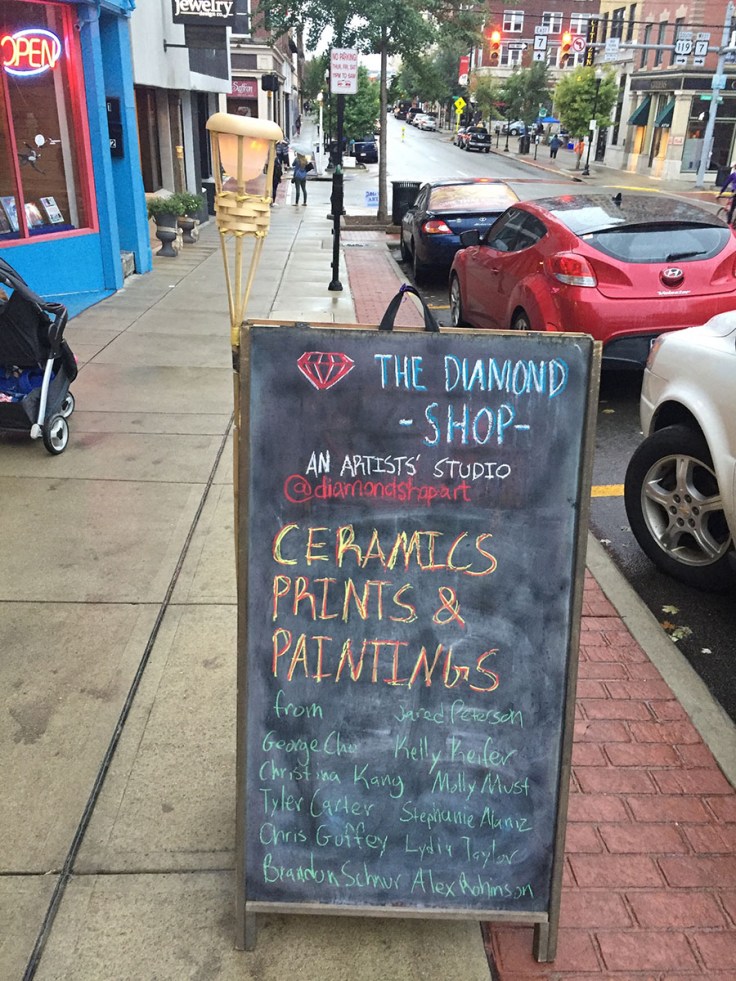 Jewelry
design co.
OPEN
NO PARKING
Saffron
119
7
7
THE DIAMOND
-SHOP-
AN ARTISTS' STUDIO
@diamondshopart
CERAMICS
PRINTS &
PAINTINGS
from Jared Peterson
George Cho Kelly Keifer
Christina Kang Molly Must
Tyler Carter Stephanie Alaniz
Chris Guffey Lydia Taylor
Brandon Schnur Alex Robinson